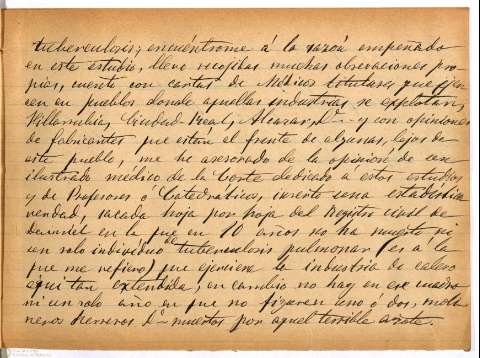 tuberculosis; encuéntrome á la razón empeñado
en este estudio, llevo recogidas muchas observaciones pro-
pias, cuento con cartas de Médicos titulares que ejer-
cen en pueblos donde aquellas industrias se explotan,
Villarrubia, Ciudad Real, Alcazar, y con opiniones
de fabricantes que están al frente de algunas, lejos de
este pueblo, me he asesorado de la opinión de un
ilustrado médico de la Corte dedicado a estos estudios
y de Profesores o Catedráticos, invento una estadística
verdad, sacada hoja por hoja del Registro civil de
Daimiel en la que en 10 años no ha muerto ni
un solo individuo de tuberculosis pulmonar (es á la
que me refiero) que ejerciera la industria de calero
aquí tan extendida, en cambio no hay en ese cuadro
ni un solo año en que no figuren uno ó dos, moli-
neros herreros &ª muertos por aquel terrible azote.